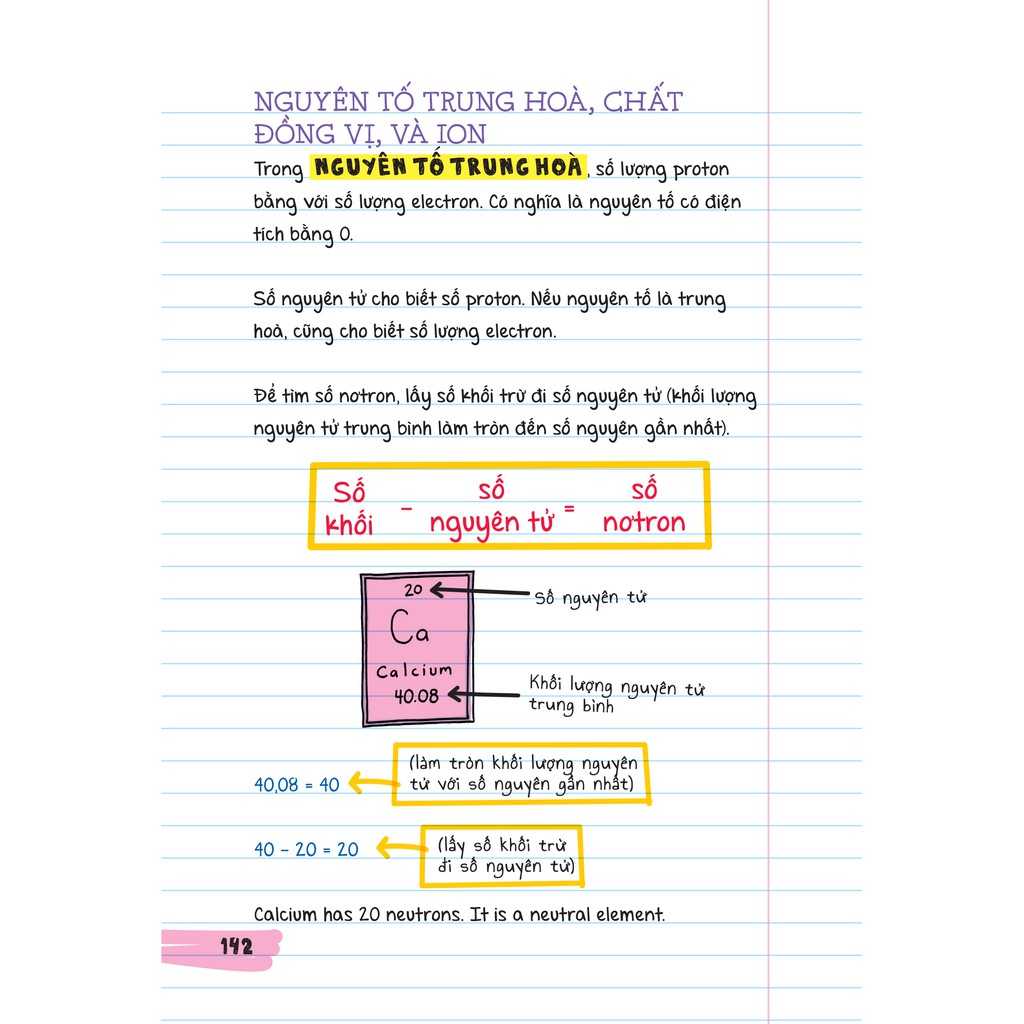 NGUYÊN TỐ TRUNG HOÀ, CHẤT
ĐỒNG VỊ, VÀ ION
Trong NGUYÊN TỐ TRUNG HOÀ, số lượng proton
bằng với số lượng electron. Có nghĩa là nguyên tố có điện
tích bằng 0.
Số nguyên tử cho biết số proton. Nếu nguyên tố là trung
hoà, cũng cho biết số lượng electron.
Để tìm số nơtron, lấy số khối trừ đi số nguyên tử (khối lượng
nguyên tử trung bình làm tròn đến số nguyên gần nhất).
Số khối - số nguyên tử = số nơtron
20
Số nguyên tử
Ca
Calcium
40.08
Khối lượng nguyên tử
trung bình
(làm tròn khối lượng nguyên
tử với số nguyên gần nhất)
40,08 = 40
40 – 20 = 20
(lấy số khối trừ
đi số nguyên tử)
Calcium has 20 neutrons. It is a neutral element.
142